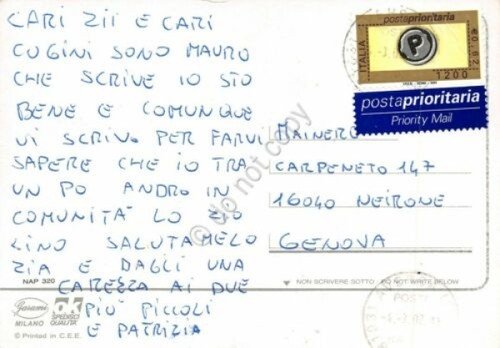 CARI ZII E CARI
CUGINI SONO MAURO
CHE SCRIVE IO STO
BENE E COMUNQUE
VI SCRIVO PER FARVI
SAPERE CHE IO TRA
UN PO ANDRO IN
COMUNITA' LO ZIO
LINO SALUTAMELO
ZIA E DAGLI UNA
CAREZZA AI DUE
PIU PICCOLI
E PATRIZIA
NAP 320
Garami
MILANO
OK
SPEDISCI
QUALITA'
© Printed in C.E.E.
postaprioritaria
ITALIA
P
€0,62
1200
postaprioritaria
Priority Mail
MAINERO
CARPENETO 147
16040 NEIRONE
GENOVA
NON SCRIVERE SOTTO
DO NOT WRITE BELOW
do not copy